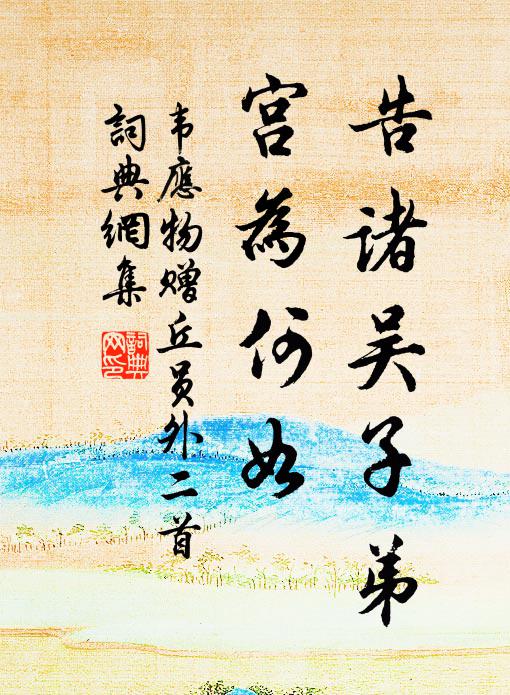 告诸吴子弟
宫為何如
韦應物赠丘员外二首
詞典網集
詞典网印